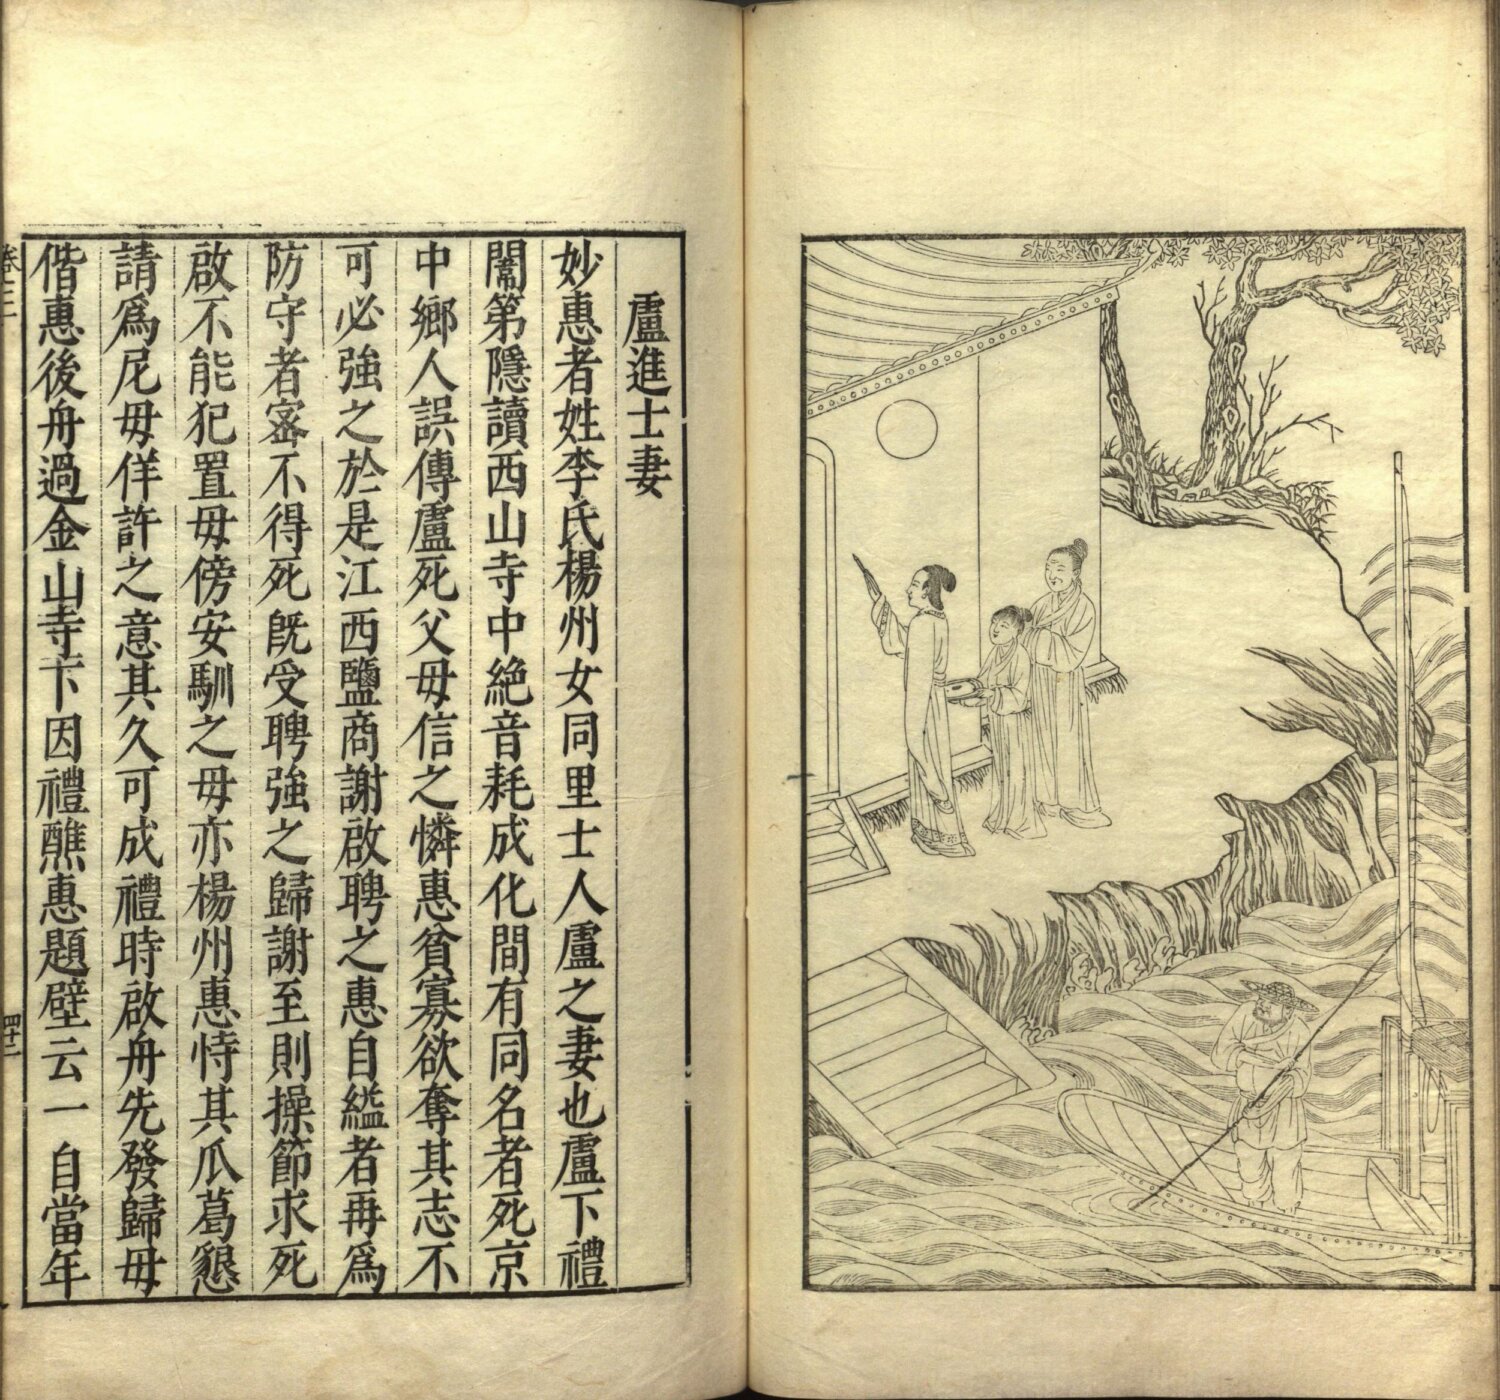 盧進士妻
妙惠者姓李氏楊州女同里士人盧之妻也盧下禮
闈第隱讀西山寺中絕音耗成化間有同名者死京
中鄉人誤傳盧死父毋信之憐惠貧寡欲奪其志不
可必強之於是江西鹽商謝啟聘之惠自縊者再爲
防守者宻不得死旣受聘強之歸謝至則操節求死
啟不能犯置毋傍安馴之毋亦楊州惠恃其瓜葛懇
請爲尼毋佯許之意其久可成禮時啟舟先發歸毋
偕惠後舟過金山寺下因禮醮惠題壁云一自當年
卷十二
四十二